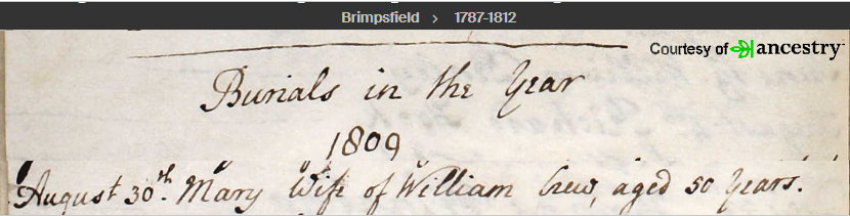 Brimpsfield > 1787-1812
Courtesy of ancestry
Burials in the Year
1809
August 30th. Mary Wife of William Crew, aged 50 Years.